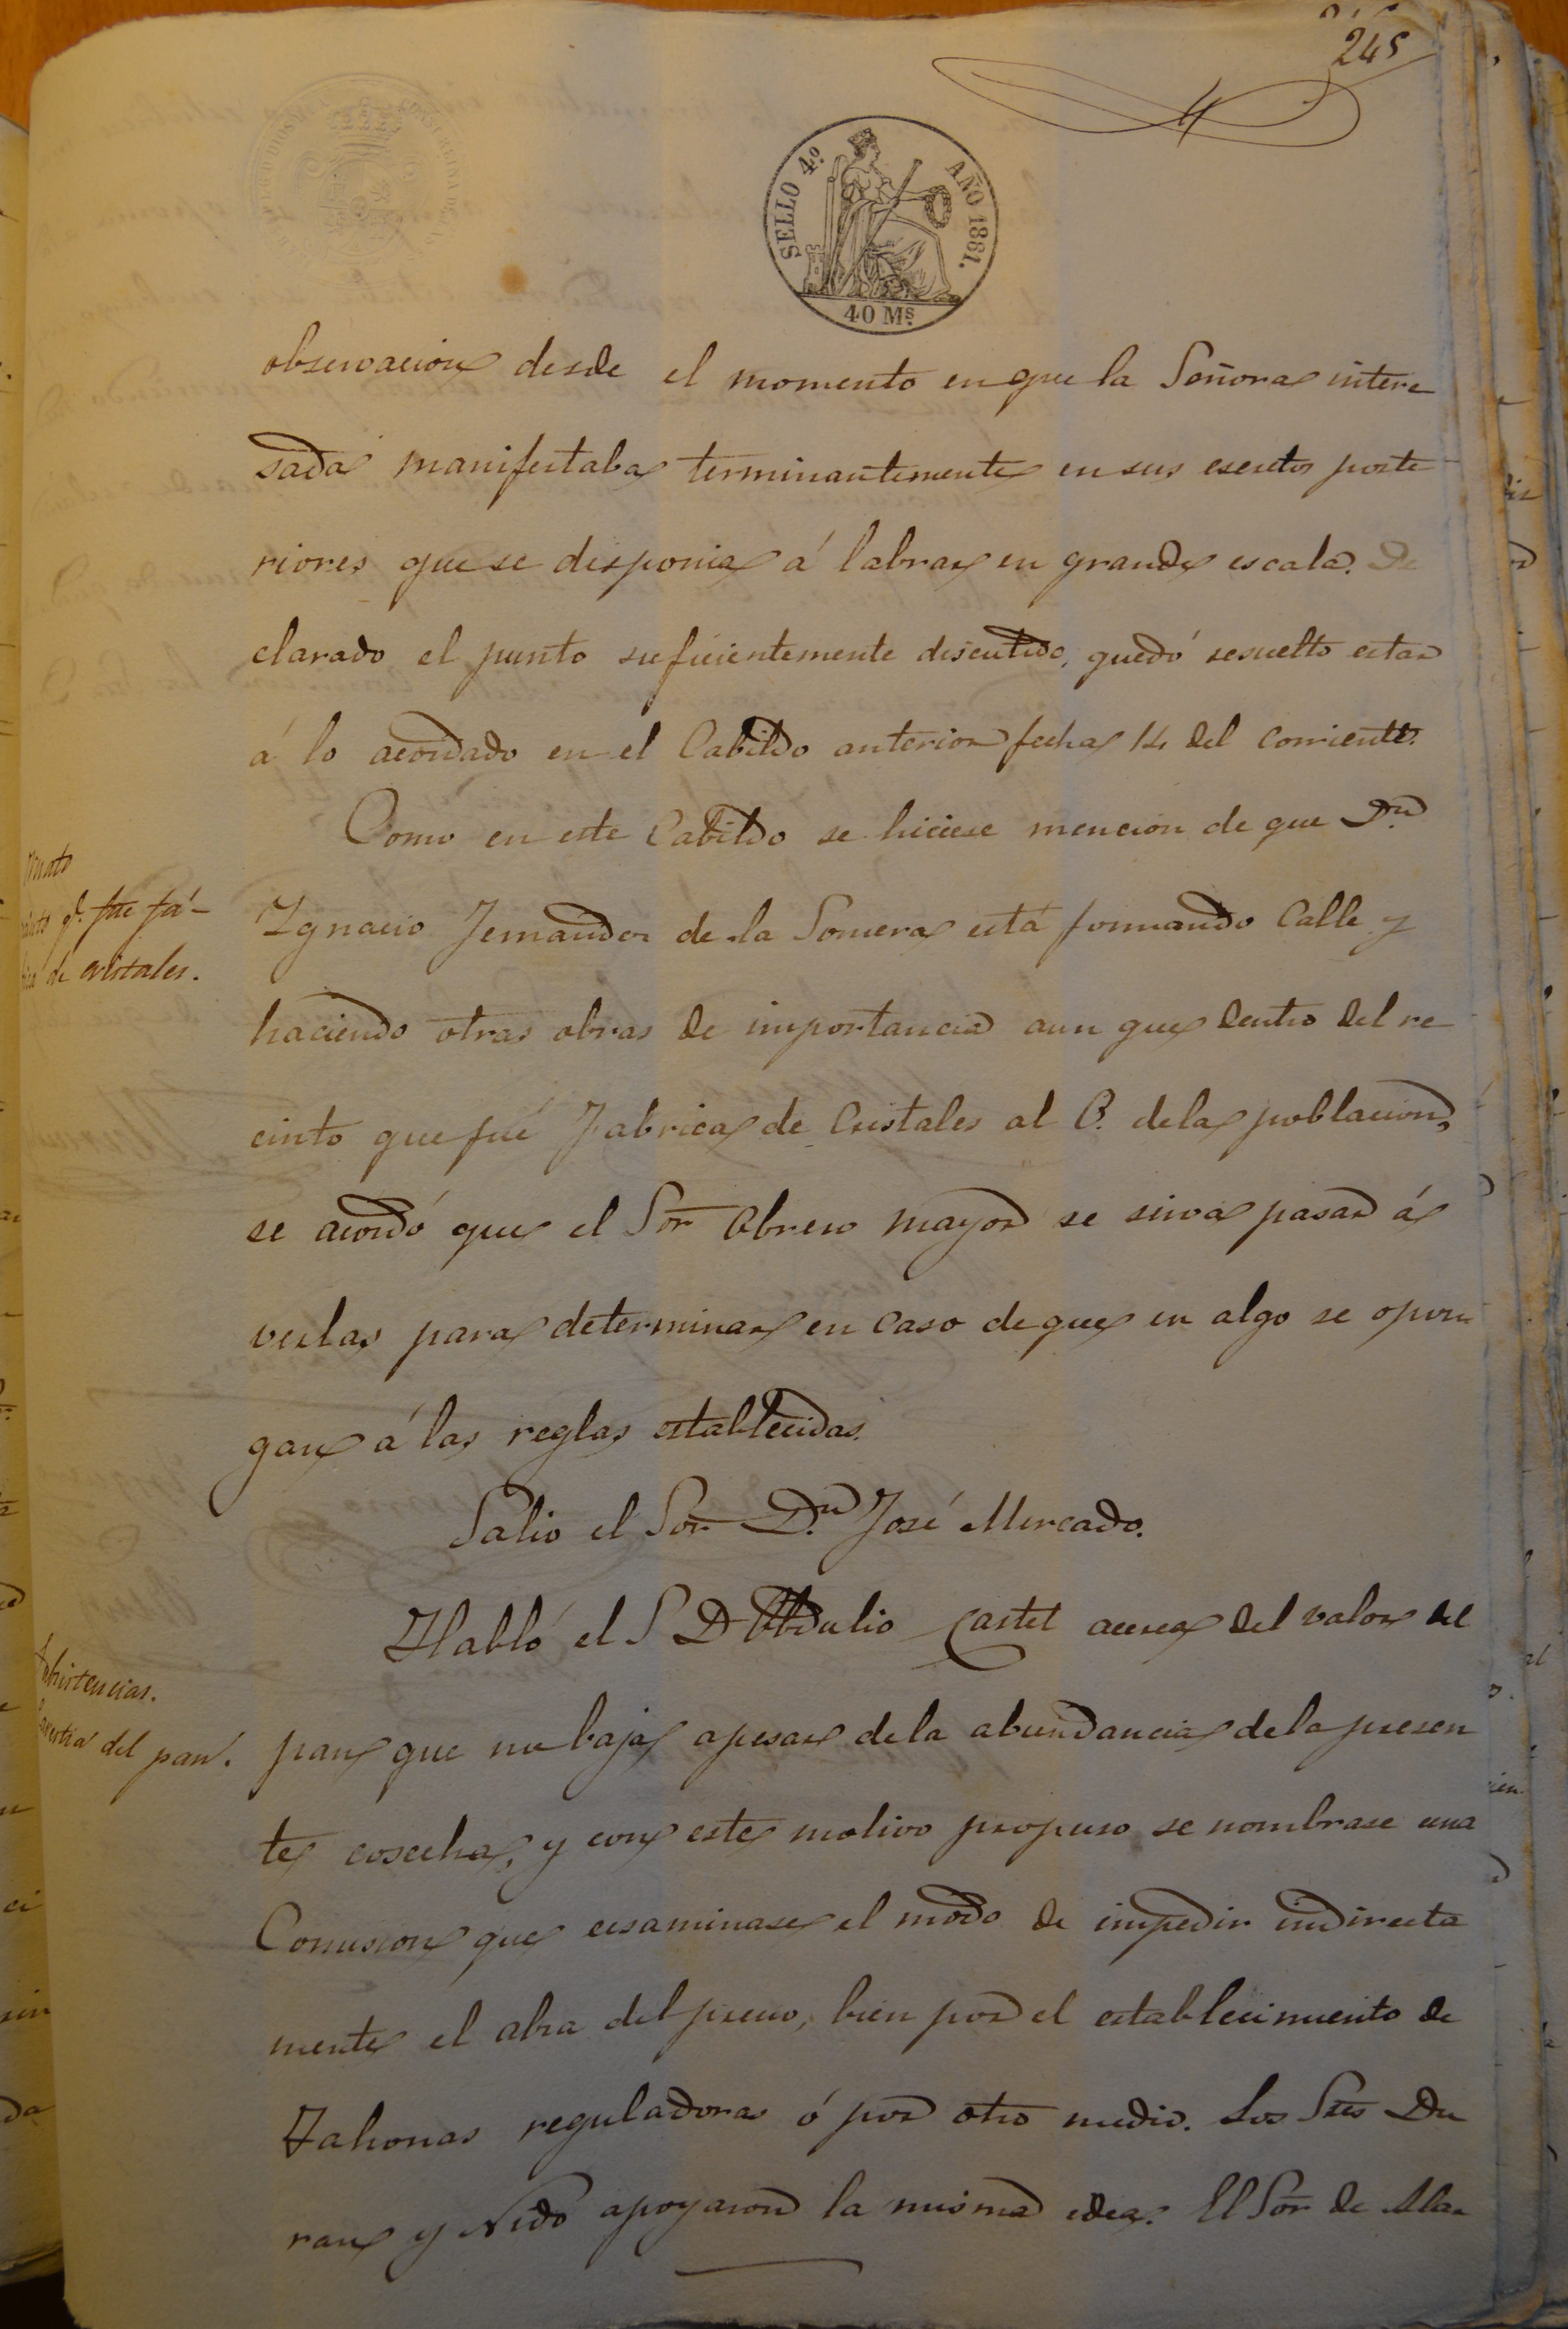 245
SELLO 4º. AÑO 1861.
40 Ms.
observacion desde el momento en que la Señora intere
sada manifestaba terminantemente en sus escritos poste
riores que se disponia á labrar en grande escala. De
clarado el punto suficientemente discutido, quedó resuelto estar
á lo acordado en el Cabildo anterior fecha 14 del corriente.
Como en este Cabildo se hiciese mencion de que Dn.
Ygnacio Fernandez de la Somera está formando Calle y
haciendo otras obras de importancia aun que dentro del re
cinto que fué Fabrica de Cristales al P. de la poblacion,
se acordó que el Sor Obrero mayor se sirva pasar á
verlas para determinar en caso de que en algo se opon
gan á las reglas establecidas.
Salio el Sor Dn. José Mercado.
Habló el S D Obdulio Castel acerca del valor del
pan que no baja apesar de la abundancia de la presen
te cosecha, y con este motivo propuso se nombrase una
Comision que ecsaminase el modo de impedir indirecta
mente el alza del precio, bien por el establecimiento de
Tahonas reguladoras ó por otro medio. Los Sres Du
ran y Nido apoyaron la misma idea. El Sor de
qe. fue fá-
de cristales.
Subsistencias.
Carestia del pan.